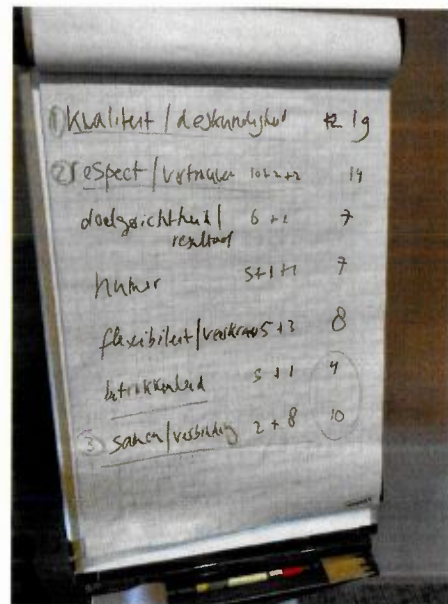 ① Kwaliteit / deskundigheid 19
② respect / vertrouwen 10+2+2 14
doelgerichtheid / 6 +1 7
resultaat
humor 5+1+1 7
flexibiliteit / 5 +3 8
betrokkenheid 3 +1 4
③ samen / verbinding 2 + 8 10